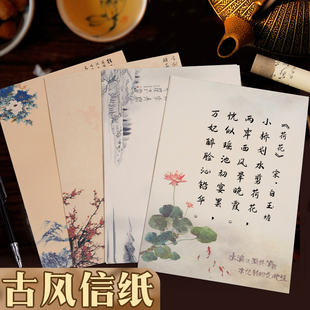 《荷花》宋·白玉蟾
小桥划水剪荷花,
两岸西风晕晚霞。
恍似瑶池初宴罢,
万妃醉脸沁铅华。
古风信纸